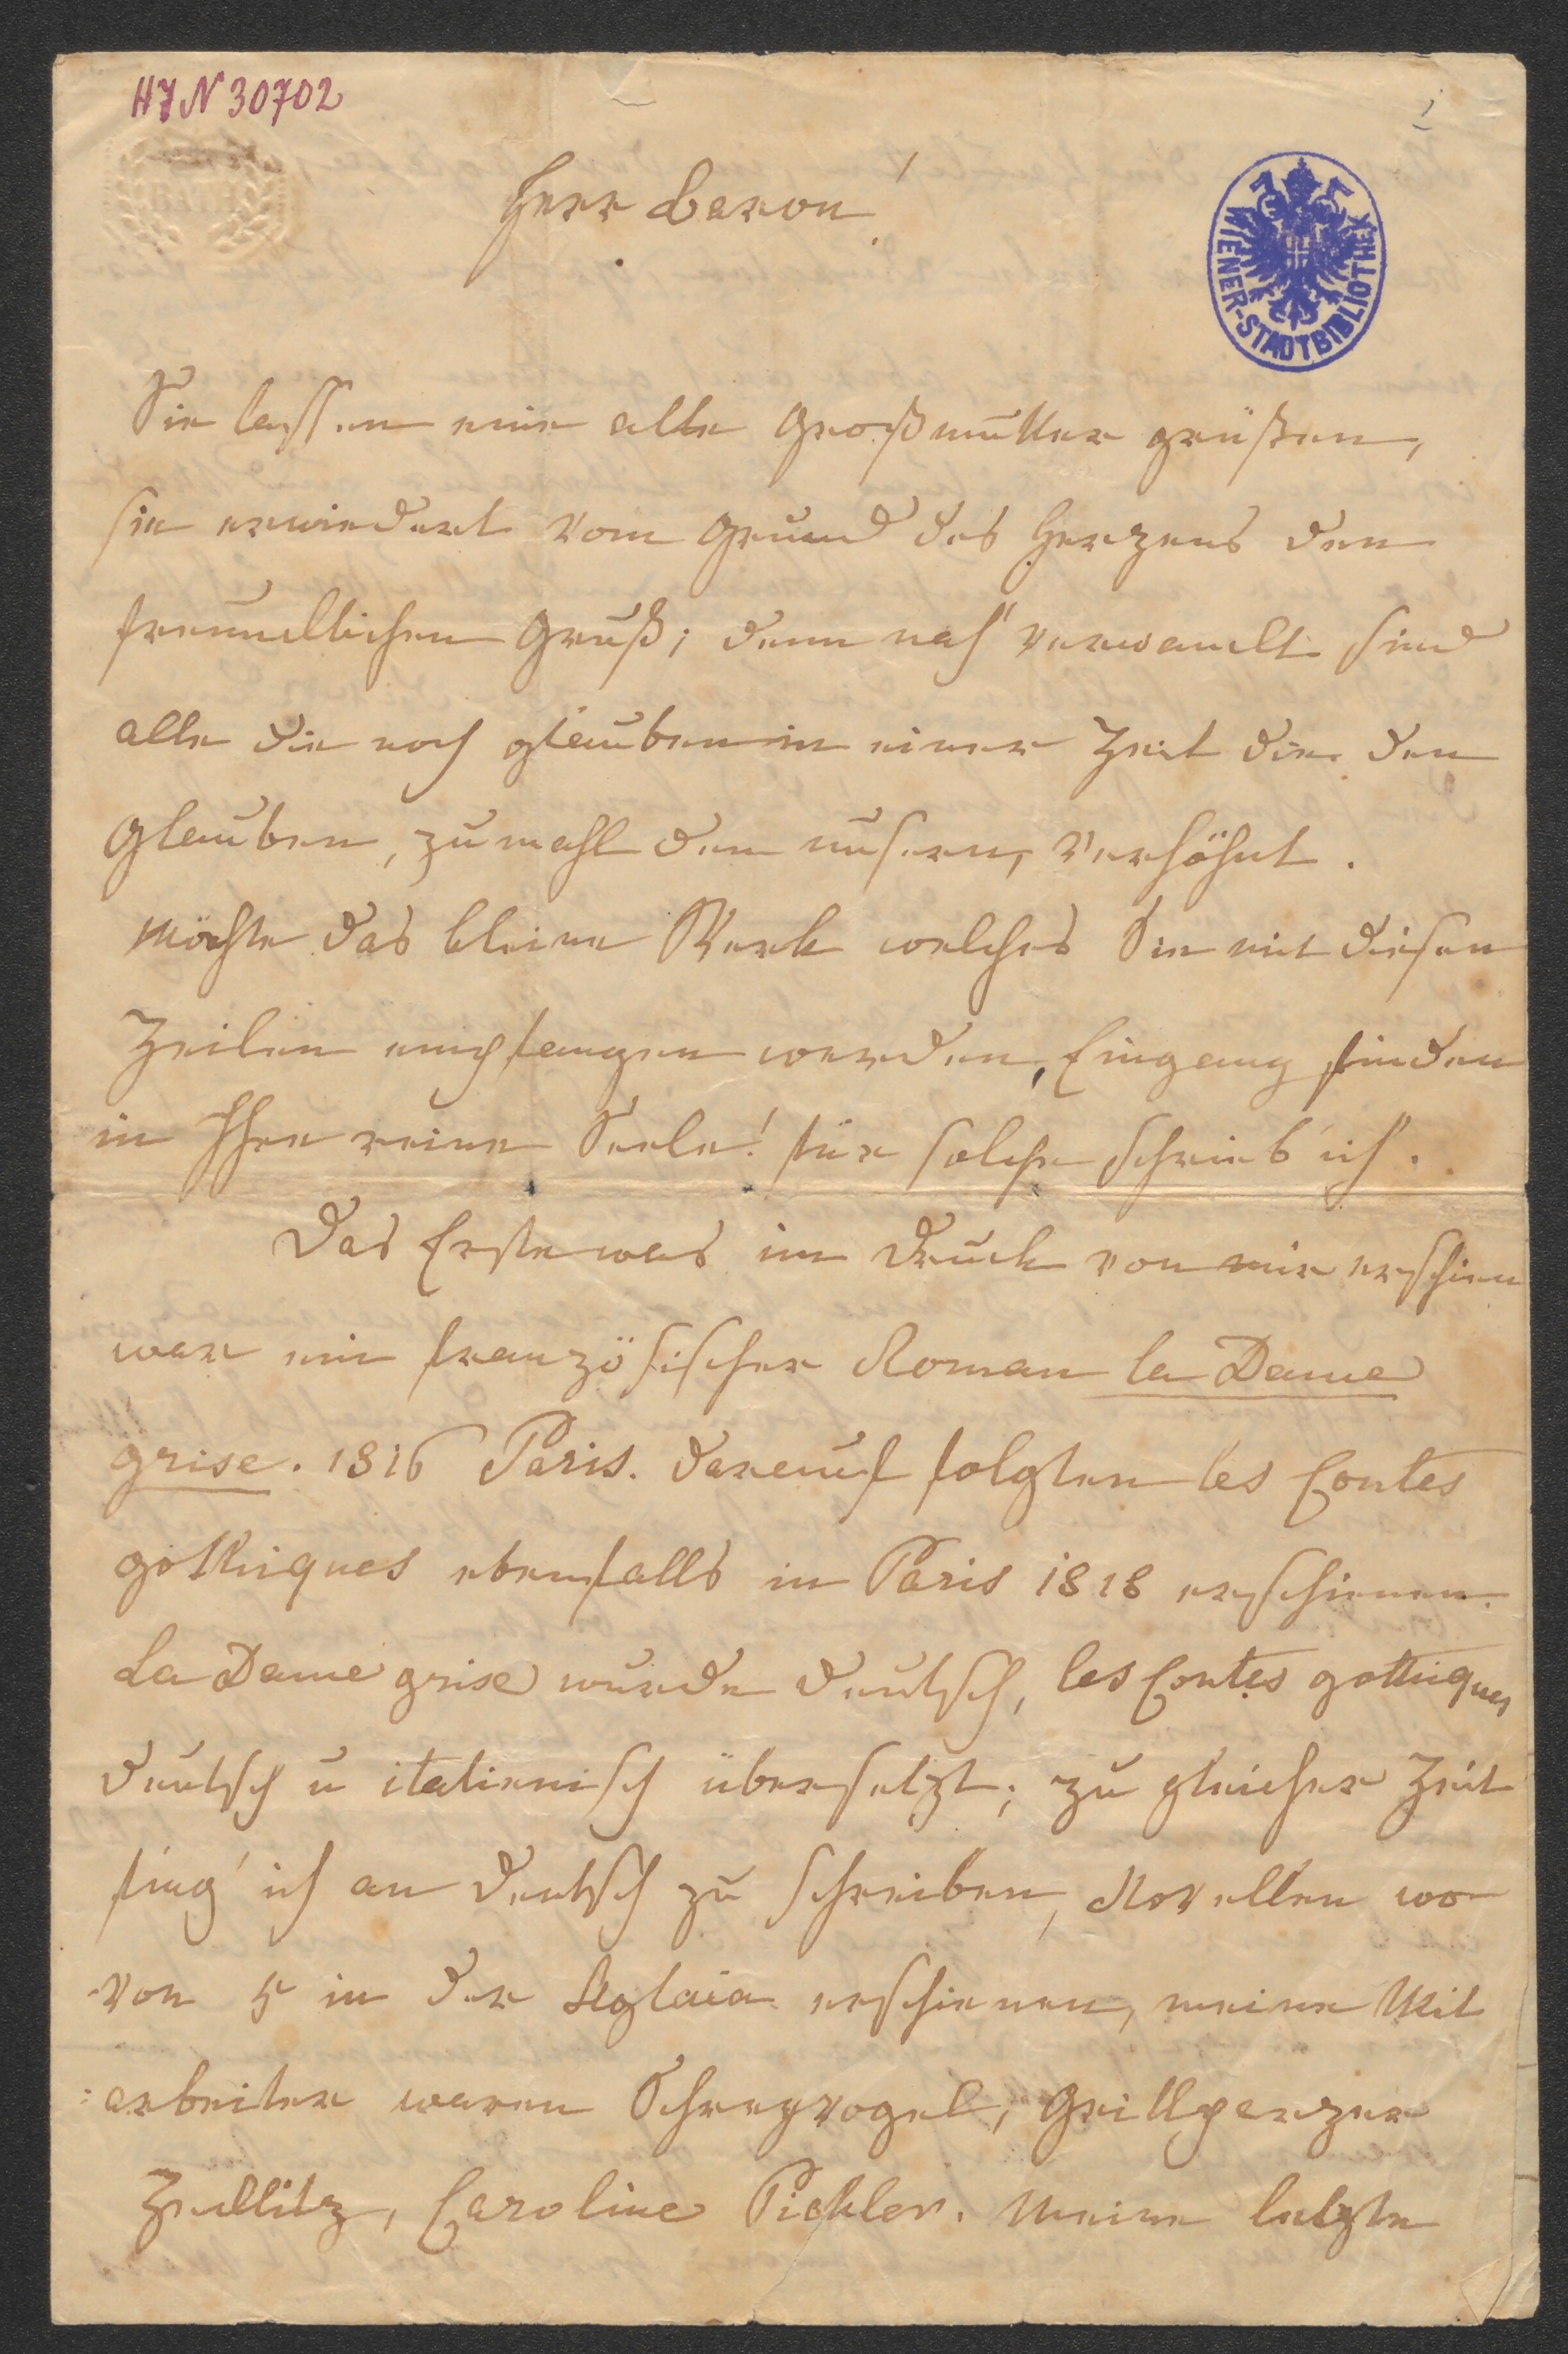 HIN 30702
1
BATH
WIENER-STADTBIBLIOTHEK
Herr Baron!
Sie lassen eine alte Großmutter grüßen,
sie erwiedert vom Grund des Herzens den
freundlichen Gruß; denn nah' verwandt sind
alle die noch glauben in einer Zeit die den
Glauben, zumahl den unsern, verhöhnt.
Möchte das kleine Werk welches Sie mit diesen
Zeilen empfangen werden, Eingang finden
in Ihre reine Seele! für solche schrieb ich.
Das Erste was im Druck von mir erschien
war ein französischer Roman la Dame
grise. 1816 Paris. darauf folgten les Contes
gothiques ebenfalls in Paris 1818 erschienen.
La Dame grise wurde deutsch, les Contes gothiques
deutsch u italienisch übersetzt; zu gleicher Zeit
fing' ich an deutsch zu schreiben, Novellen wo
von 5 in der Aglaia erschienen, meine Mit
arbeiter waren Schreyvogel, Grillparzer
Zedlitz, Caroline Pichler. Meine letzte